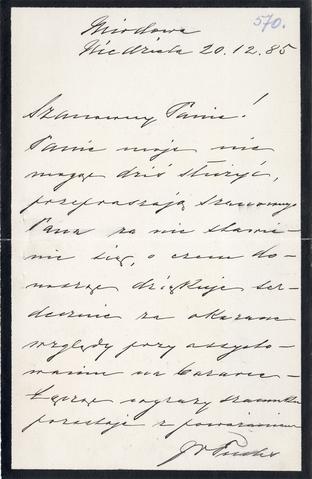 570.
Miodowa
Niedziela 20.12.85
Szanowny Panie!
Panie moje nie
mogąc dziś służyć,
przepraszają Szanownego
Pana za nie stawie-
nie się, o czem do-
nosząc dziękuję ser-
decznie za okazane
względy przy assysto-
waniu na Bazarze -
Łącząc wyrazy szacunku
pozostaję z poważaniem
Fuchs